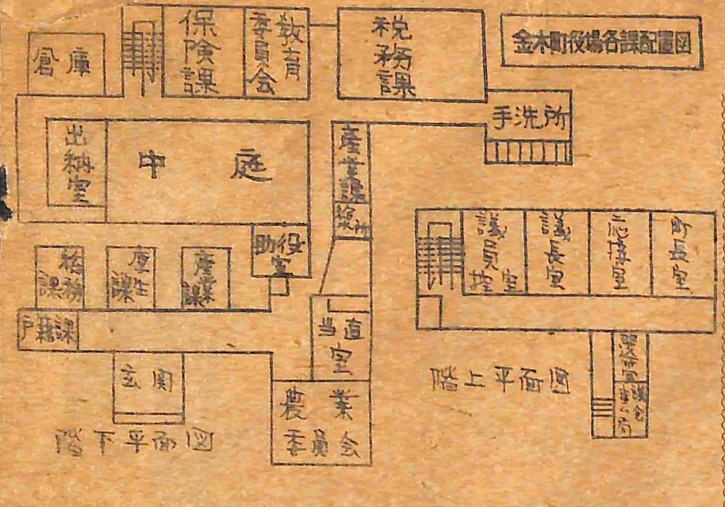 金木町役場各課配置図
倉庫
保険課
教育委員会
税務課
手洗所
出納室
中庭
産業課
助役室
総務課
厚生課
産業課
戸籍課
当直室
玄関
農業委員会
階下平面図
議員控室
議長室
応接室
町長室
階上平面図